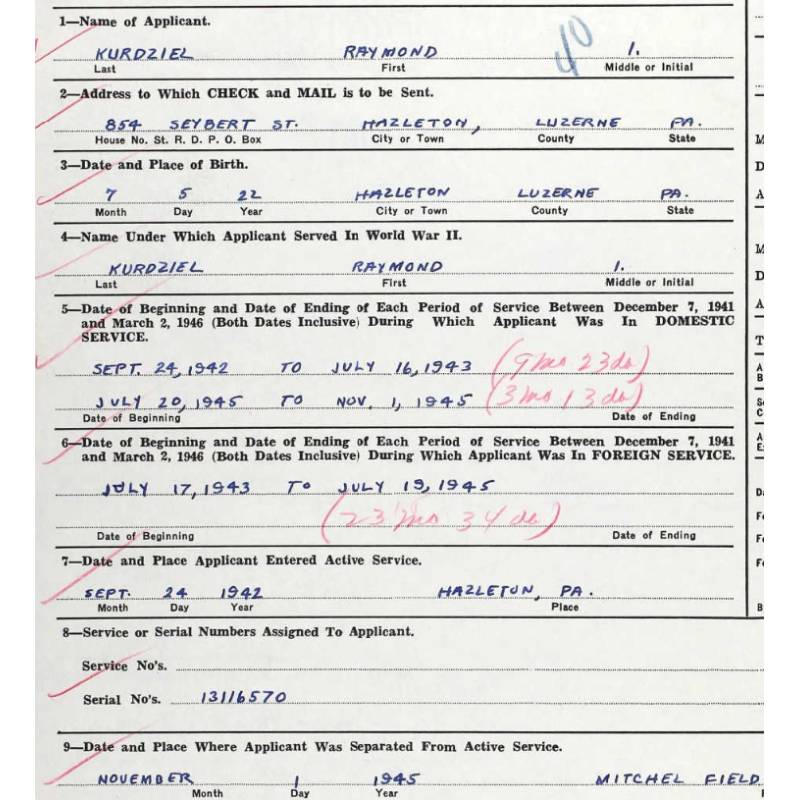 1—Name of Applicant.
KURDZIEL RAYMOND I.
Last First Middle or Initial
40
2—Address to Which CHECK and MAIL is to be Sent.
854 SEYBERT ST. HAZLETON, LUZERNE PA.
House No. St. R. D. P. O. Box City or Town County State
3—Date and Place of Birth.
7 5 22 HAZLETON LUZERNE PA.
Month Day Year City or Town County State
4—Name Under Which Applicant Served In World War II.
KURDZIEL RAYMOND I.
Last First Middle or Initial
5—Date of Beginning and Date of Ending of Each Period of Service Between December 7, 1941
and March 2, 1946 (Both Dates Inclusive) During Which Applicant Was In DOMESTIC
SERVICE.
SEPT. 24, 1942 TO JULY 16, 1943 (9 mo 23 da)
JULY 20, 1945 TO NOV. 1, 1945 (3 mo 13 da)
Date of Beginning Date of Ending
6—Date of Beginning and Date of Ending of Each Period of Service Between December 7, 1941
and March 2, 1946 (Both Dates Inclusive) During Which Applicant Was In FOREIGN SERVICE.
JULY 17, 1943 TO JULY 19, 1945
(23 mo 34 da)
Date of Beginning Date of Ending
7—Date and Place Applicant Entered Active Service.
SEPT. 24 1942 HAZLETON, PA.
Month Day Year Place
8—Service or Serial Numbers Assigned To Applicant.
Service No's.
Serial No's. 13116570
9—Date and Place Where Applicant Was Separated From Active Service.
NOVEMBER 1 1945 MITCHEL FIELD
Month Day Year